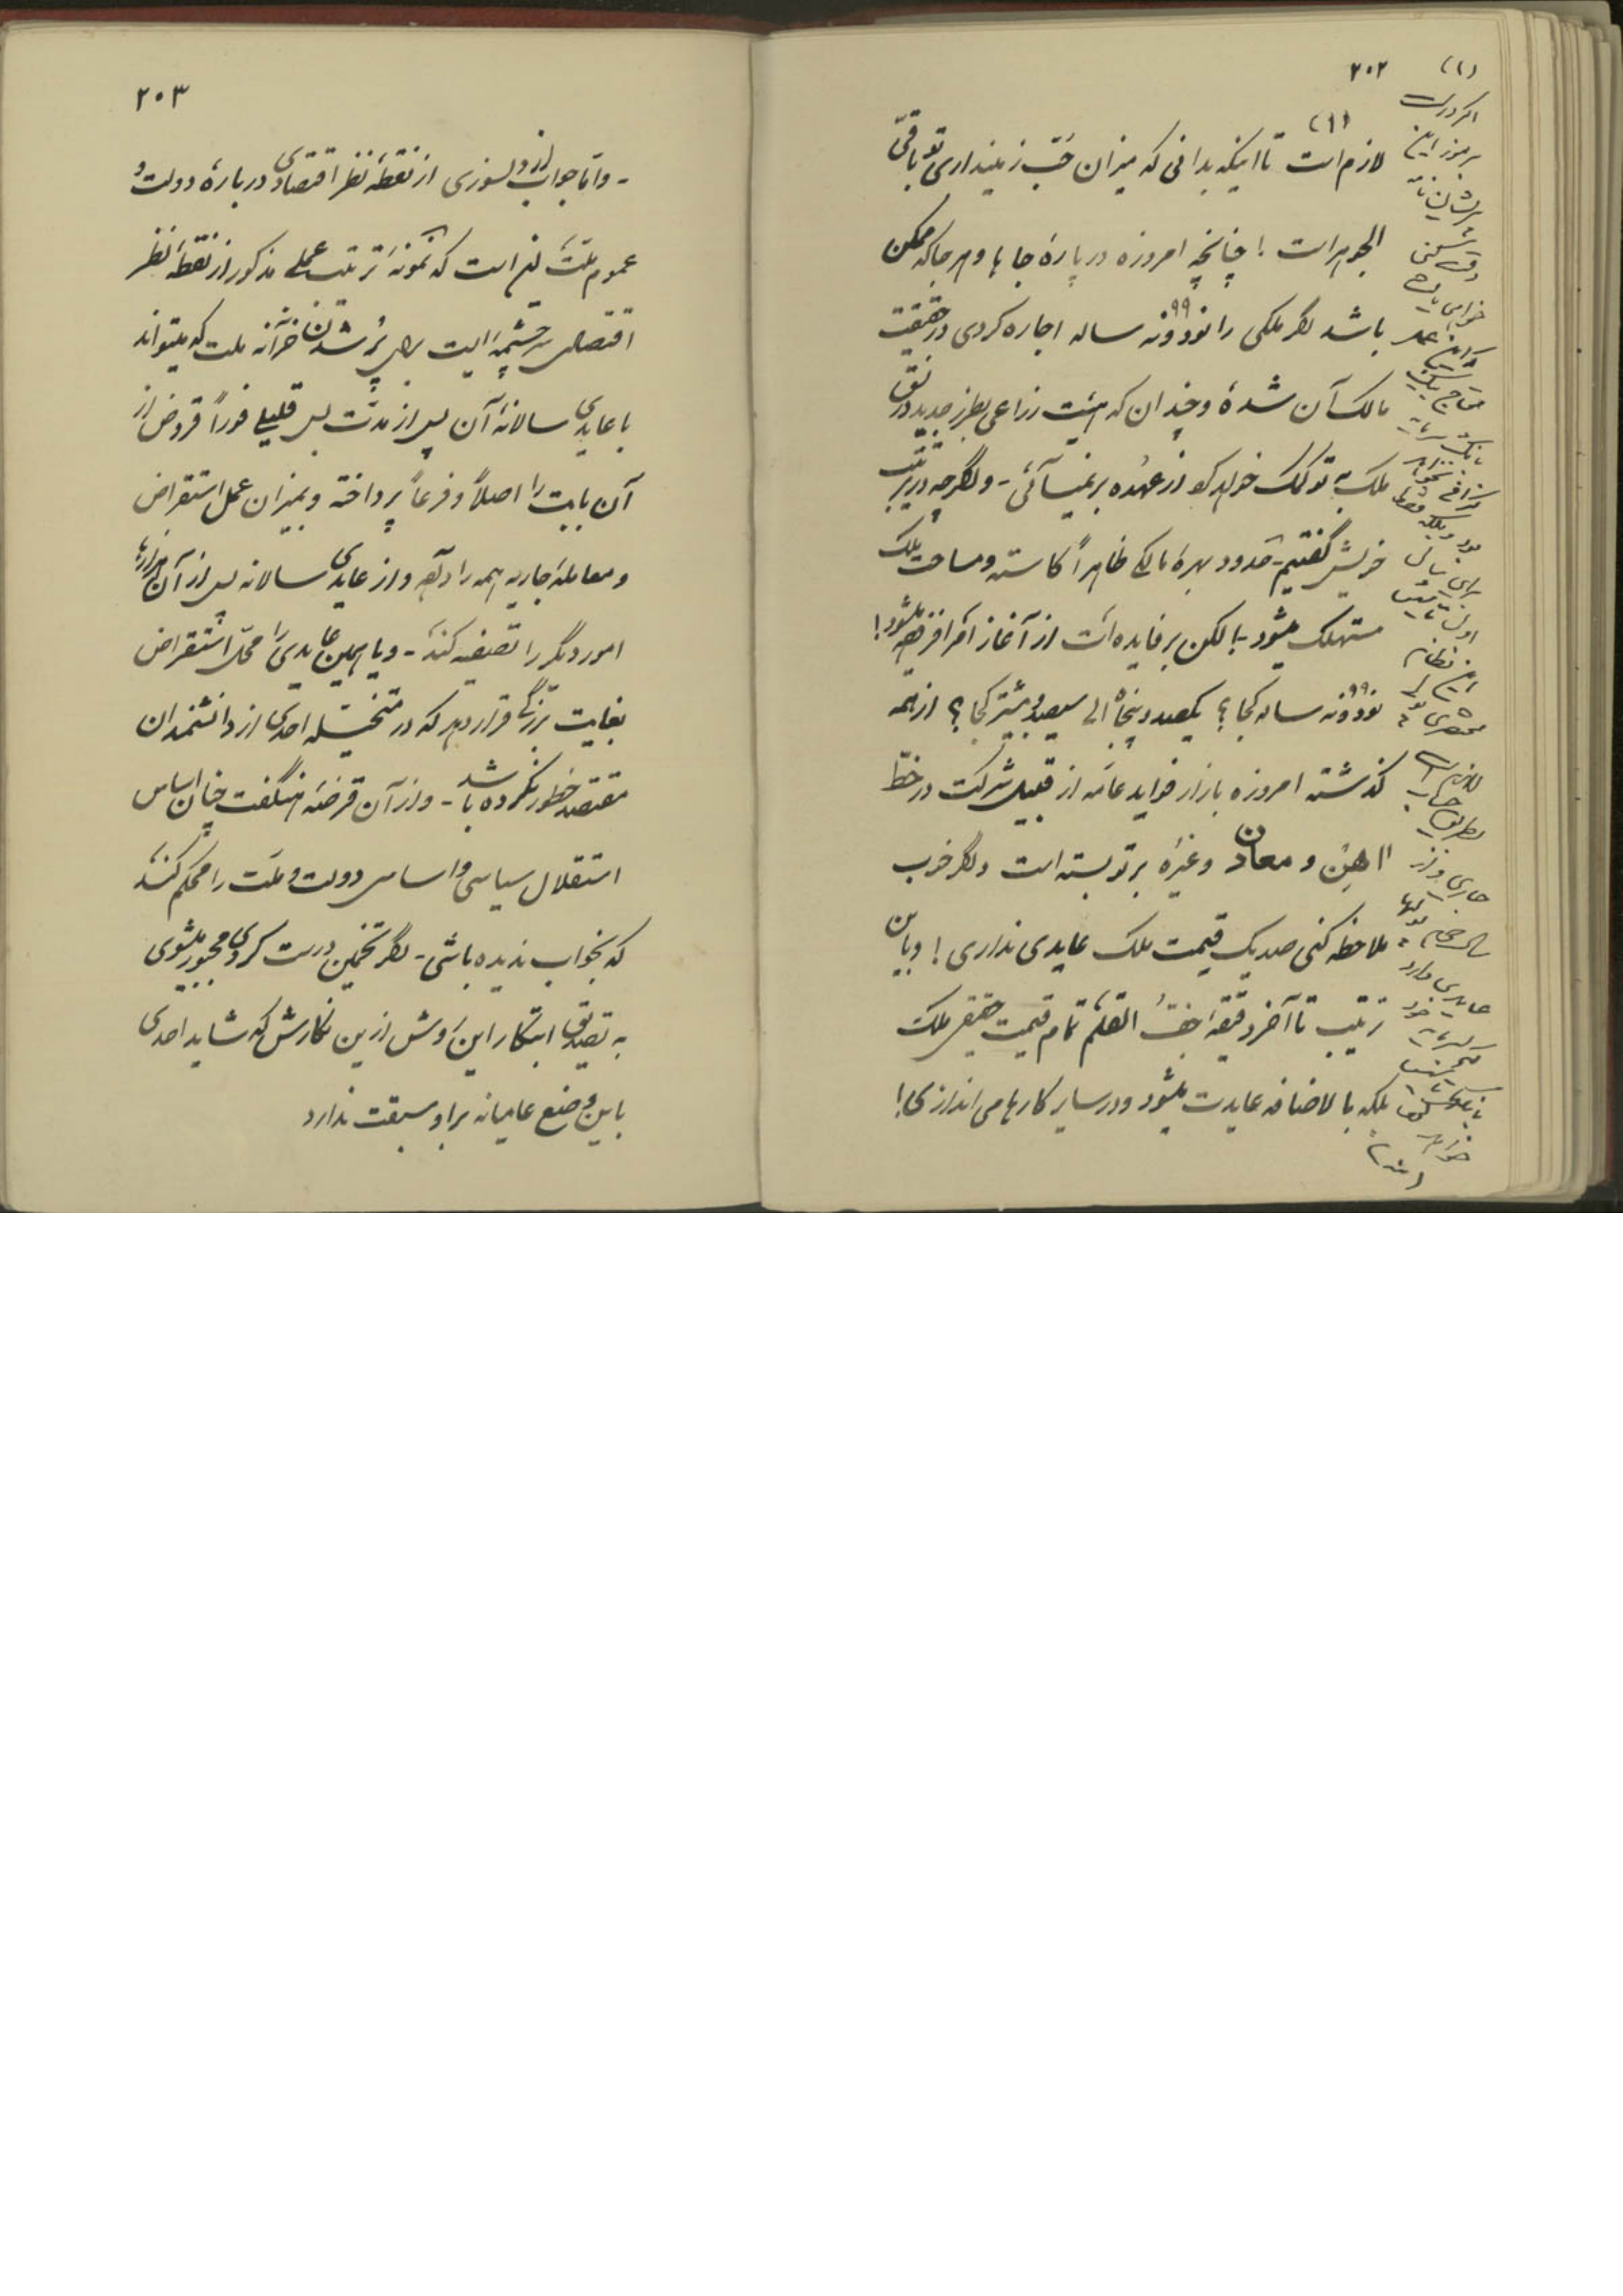 ٢٠٢
لازم است تا اینکه بدانی که میزان حُبّ زمینداری تو باقی
الجوهر است ! چنانچه امروزه در پارهٔ جاها و هر جا که ممکن
باشد اگر ملکی را نود و نه ٩٩ ساله اجاره کردی در حقیقت
مالک آن شدهٔ و چندان که هیئت زراعی بطرز جدید در
ملک به تو کمک خواهد کرد از عهده بر نمیآئی - و اگرچه در ترتیب
خویش گفتیم - حدود بهرهٔ مالکی ظاهراً کاسته و مساحت ملک
مستهلک میشود ! لکن پر فایده است از آغاز امر
نود و نه ٩٩ ساله کجا ؟ یکصد و پنجاه الی سیصد و بیشتر کجا ؟ از همه
گذشته امروزه بازار فواید عامّه از قبیل شرکت در خطّ
آهن و معادن و غیره بر تو بسته است و اگر خوب
ملاحظه کنی صد یک قیمت ملک عایدی نداری ! و باین
ترتیب تا آخر دقیقهٔ جفّ القلم تمام قیمت حقیقی ملک
بلکه با لاضافه عایدت میشود و در سایر کارها می اندازی !
(١)
اگر درست
برموز این
خواهی یافت
که این عمل
محتاج بیک
بانک
بود و بلکه فقط
برای سال
اول تأسیس
این نظام
لازم است
بطریق حساب
جاری و از
عایدی وارد
خواهد
(منه)
٢٠٣
- و امّا جواب از دلسوزی از نقطهٔ نظر اقتصادی در بارهٔ دولت و
عموم ملّت این است که نمونهٔ ترتیب عملی مذکور از نقطهٔ نظر
اقتصادی سرچشمهٔ ایست برای پُر شدن خزانه ملت که میتواند
با عایدی سالانهٔ آن پس از مدّت بس قلیلی فوراً قروض از
آن بابت را اصلاً و فرعاً پرداخته و بمیزان عمل استقراض
و معاملهٔ جاریه همه را داده و از عایدی سالانه پس از آن
امور دیگر را تصفیه کند - و یا همین عایدی را محلّ استقراض
بغایت بزرگی قرار دهد که در متخیّلهٔ احدی از دانشمندان
مقتصد خطور نکرده باشد - و از آن قرضهٔ هنگفت چنان اساس
استقلال سیاسی و اساس دولت و ملّت را محکم کند
که بخواب ندیده باشی - اگر تخمین درست کردی مجبور میشوی
به تصدیق ابتکار این روش ازین نگارش که شاید احدی
باین وضع عامیانه بر او سبقت ندارد